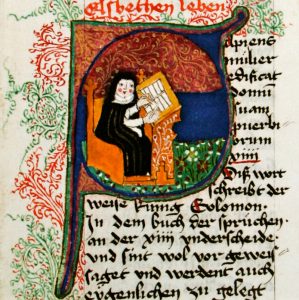 Elsbethen leben
Sapiens
mulier
edificat
domū
suam
puerbi
orum
xiiii
Diß wort
schreibt der
weise kunig Salomon
In dem buch der spruchen
an der xiiii vnderscheide
vnd sint wol vor geweis
saget vnd werdent auch
eygenlichen zu gelegt